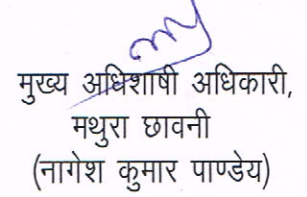 मुख्य अधिशाषी अधिकारी,
मथुरा छावनी
(नागेश कुमार पाण्डेय)